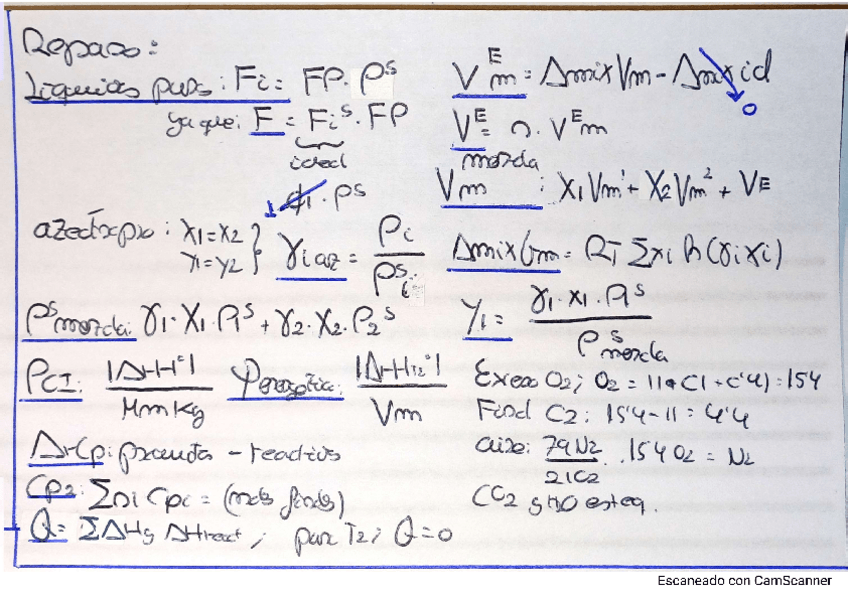 Repaso:
Líquidos puros: Fi = FP. Pˢ
ya que: F = Fiˢ. FP
ideal
ϕ1. Pˢ
azeótropo: X1=X2
Y1=Y2 } γi az = Pi / Pˢi
Pˢ mezcla: γ1. X1. P1ˢ + γ2. X2. P2ˢ
PCI: |ΔH°| / Mm Kg
energética: |ΔHT2°| / Vm
ΔrCpi: - reactivos
Cp2: Σni Cpi = (mols finals)
Q= ΣΔHg ΔHreact ; para T2; Q=0
Vᴱm = ΔmixVm - Δmix id
0
Vᴱ = n. Vᴱm
mezcla
Vm : X1Vm¹ + X2Vm² + VE
ΔmixGm = RT Σxi ln(γi xi)
Y1 = γ1. X1. P1ˢ / Pˢ mezcla
Exceso O2; O2 = 11•(1+0'4) = 15'4
Final : 15'4-11 = 4'4
aire: 79N2 / 21O2 . 15'4 O2 = N2
CO2 y H2O esteq.
Escaneado con CamScanner